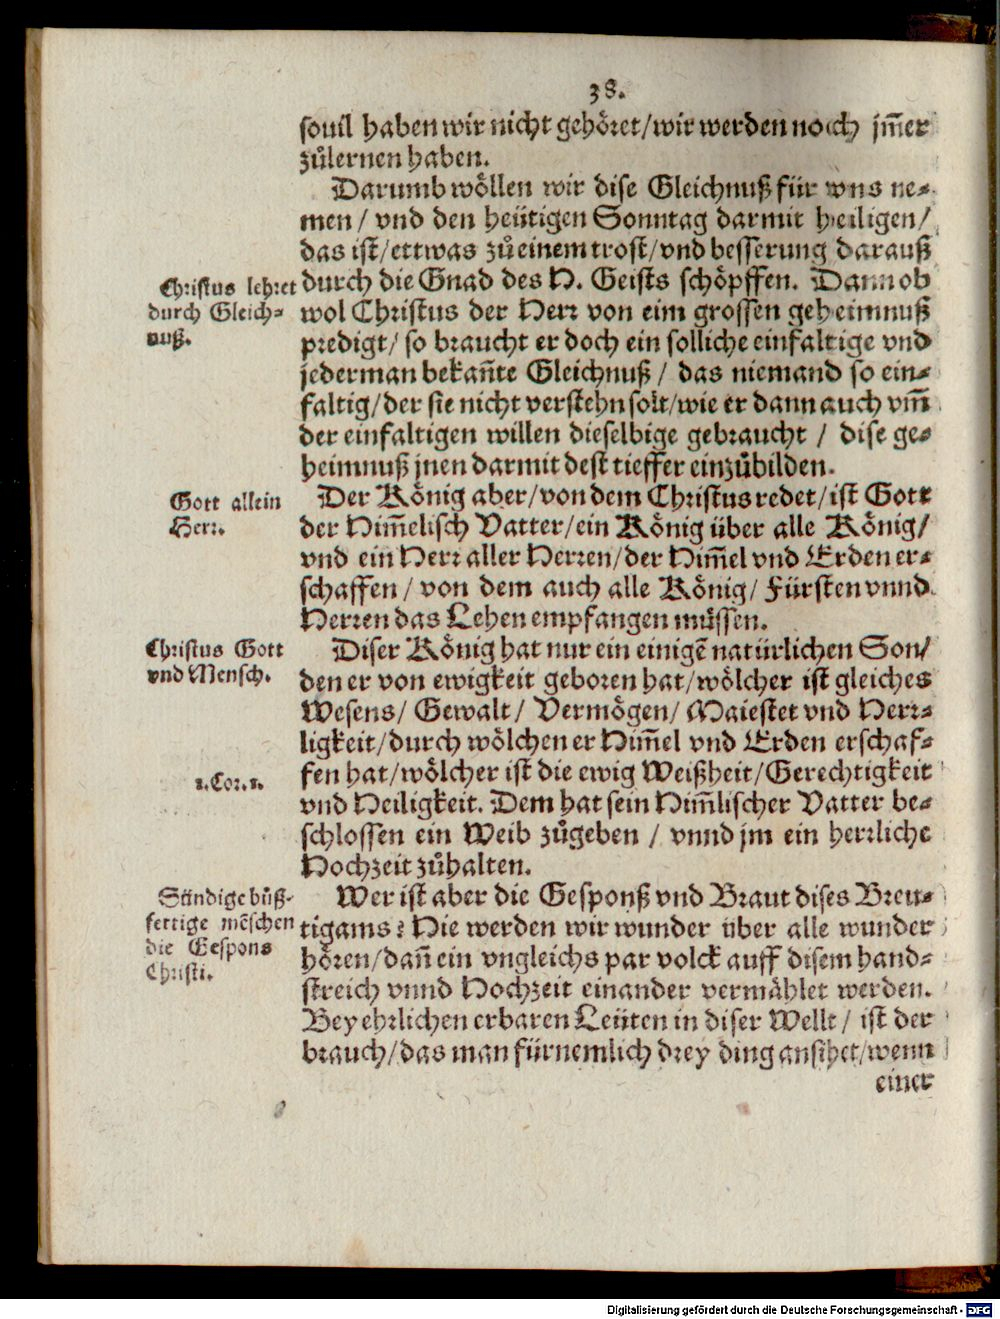 38.
souil haben wir nicht gehöret/wir werden noch jm̃er
zůlernen haben.
Darumb wöllen wir dise Gleichnuß für vns ne-
men/ vnd den heütigen Sonntag darmit heiligen/
das ist/ettwas zů einem trost/vnd besserung darauß
Christus lehret
durch Gleich-
nuß.
durch die Gnad des H. Geists schöpffen. Dann ob
wol Christus der Herr von eim grossen geheimnuß
predigt/ so braucht er doch ein solliche einfaltige vnd
jederman bekañte Gleichnuß/ das niemand so ein-
faltig/der sie nicht verstehn solt/wie er dann auch vm̃
der einfaltigen willen dieselbige gebraucht / dise ge-
heimnuß jnen darmit dest tieffer einzůbilden.
Gott allein
Herr.
Der König aber/von dem Christus redet/ist Gott
der Him̃elisch Vatter/ein König über alle König/
vnd ein Herr aller Herren/der Him̃el vnd Erden er-
schaffen/ von dem auch alle König/ Fürsten vnnd
Herren das Lehen empfangen müssen.
Christus Gott
vnd Mensch.
Diser König hat nur ein einigẽ natürlichen Son/
den er von ewigkeit geboren hat/wölcher ist gleiches
Wesens/ Gewalt/ Vermögen/ Maiestet vnd Herr-
ligkeit/durch wölchen er Him̃el vnd Erden erschaf-
1.Cor.1.
fen hat/wölcher ist die ewig Weißheit/Gerechtigkeit
vnd Heiligkeit. Dem hat sein Him̃lischer Vatter be-
schlossen ein Weib zůgeben / vnnd jm ein herrliche
Hochzeit zůhalten.
Sündige bůß-
fertige mẽschen
die Gespons
Christi.
Wer ist aber die Gesponß vnd Braut dises Breu-
tigams? Hie werden wir wunder über alle wunder
hören/dañ ein vngleichs par volck auff disem hand-
streich vnnd Hochzeit einander vermählet werden.
Bey ehrlichen erbaren Leüten in diser Wellt/ ist der
brauch/das man fürnemlich drey ding ansihet/wenn
einer
Digitalisierung gefördert durch die Deutsche Forschungsgemeinschaft - DFG